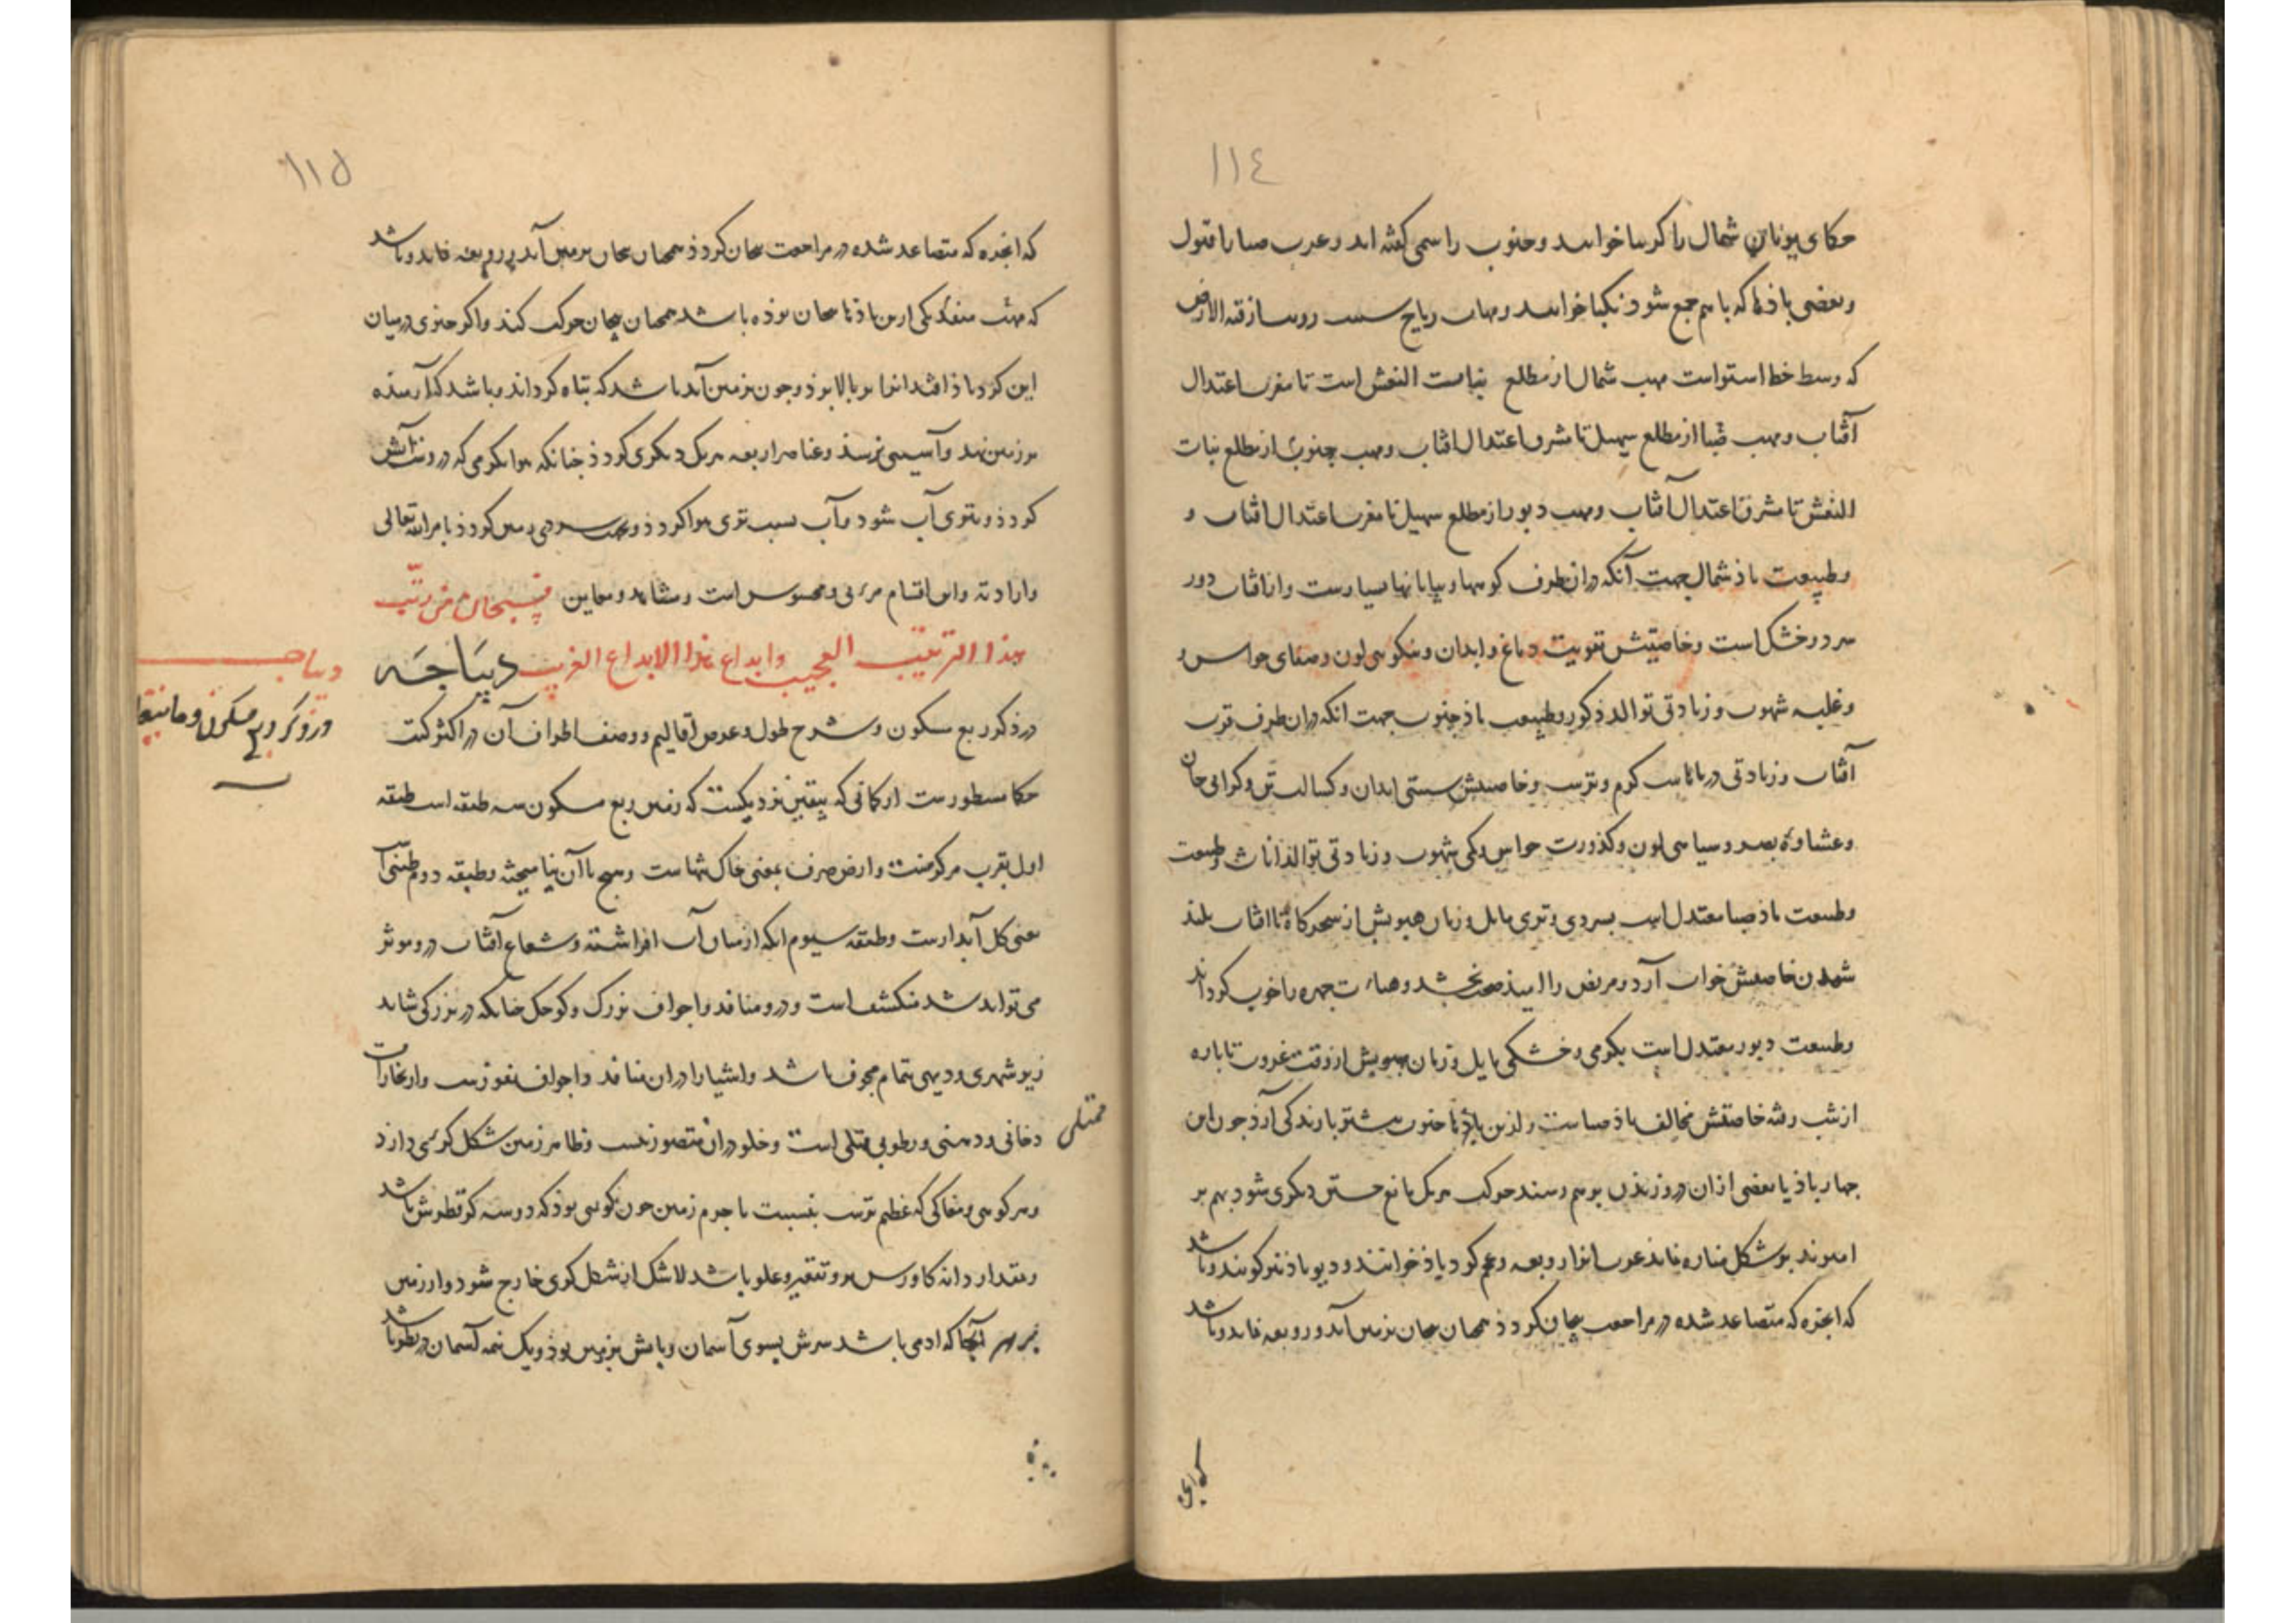 ١١٤
حکمای یونان شمال را کرسا خوانند و جنوب را سمی کفته اند و عرب صبا را قبول
و بعضی باذها که با هم جمع شوذ نکبا خوانند و مهاب ریاح
که وسط خط استواست مهب شمال از مطلع بنات النعش است تا مغرب اعتدال
آفتاب و مهب صبا از مطلع سهیل تا مشرق اعتدال افتاب و مهب جنوب از مطلع بنات
النعش تا مشرق اعتدال آفتاب و مهب دبور از مطلع سهیل تا مغرب اعتدال افتاب و
و طبیعت باذ شمال جهت آنکه دران طرف کوهها و بیابانها بسیارست و از افتاب دور
سرد و خشک است و خاصیتش تقویت دماغ و ابدان و نیکویی لون و صفای حواس و
و غلبه شهوت و زیادتی توالد ذکور و طبیعت باذ جنوب جهت انکه دران طرف قرب
آفتاب و زیادتی دریاهاست کرم و ترست و خاصیتش سستی ابدان و کسالت تن و کرانی جان
و عشاوة بصر و سیاهی لون و کدورت حواس و کمی شهوت و زیادتی توالد اناث و طبیعت
و طبیعت باذ صبا معتدل است بسردی و تری مایل و زمان هبوبش از سحرکاه تا افتاب بلند
شدن خاصیتش خواب آرد و مریض را امید صحت بخشد و چهره را خوب کرداند
و طبیعت دبور معتدل است بکرمی و خشکی مایل و زمان هبوبش از وقت غروب تا پاره
از شب رفته خاصیتش مخالف باذ صباست و ازین باذها جنوب بیشتر بارندکی آرذ جون این
جهار باذ یا بعضی ازان در وزیذن برهم رسند حرکت هر یک مانع جستن دیکری شود بهم بر
امیزند بر شکل مناره نماید عرب انرا زوبعه و عجم کردباذ خوانند و دیوباذ نیز کویند و باشد
که ابخره که متصاعد شده در مراجعت بجان کردذ همجنان بجان بزمین آید و زوبعه نماید و باشد
١١٥
که ابخره که متصاعد شده در مراجعت بجان کردذ همجنان بجان بزمین آید و زوبعه نماید و باشد
که مهب منفذ یکی ازین باذها بجان بوذه باشد همجنان بجان حرکت کند و اکر جیزی در میان
این کردباذ افتد انرا بر بالا برذ و جون بزمین آید باشد که تباه کرداند و باشد که آرمیذه
بر زمین نهد و آسیبی نرسذ و عناصر اربعه هر یک دیکری کردذ جنانکه هوا بکرمی که دروست آتش
کردذ و بتری آب شود و آب بسبب تری هوا کردذ و بسبب سردی زمین کردذ بامر الله تعالی
و ارادته و این اقسام مرئی و محسوس است و مشاهد و معاین فسبحان من رتب
هذا الترتیب العجیب و ابداع هذا الابداع الغریب دیبَاجَه
در ذکر ربع مسکون و شرح طول و عرض اقالیم و وصف اطراف آن در اکثر کتب
حکما مسطورست ارکانی که بیقین نزدیکست که زمین ربع مسکون سه طبقه است طبقه
اول بقرب مرکزست و ارض صرف یعنی خاک تنهاست و هیچ با آن نیامیخته و طبقه دوم طینی است
یعنی کل آبدارست و طبقه سیوم انکه از میان آب افراشته و شعاع آفتاب درو موثر
می تواند شد منکشف است و درو منافذ و اجواف بزرک و کوجک جنانکه در بزرکی شاید
زیر شهری و دیهی بتمام مجوف باشد و اشیا را دران منافذ و اجواف نفوذست و از بخارات
دخانی و دهنی و رطوبی ممتلی است و خلو دران متصور نیست و ظاهر زمین شکل کری دارذ
و هر کوهی و مغاکی که عظیم ترست بنسبت با جرم زمین جون کوهی بوذ که دو سه کز قطرش باشد
و بمقدار دانه کاورس برو تقعیر و علو باشد لاشک از شکل کری خارج شود و از زمین
بهر آنجا که ادمی باشد سرش بسوی آسمان و پایش بزمین بوذ و یک نیمه آسمان
ممتلی
دیباجه
در ذکر ربع مسکون و